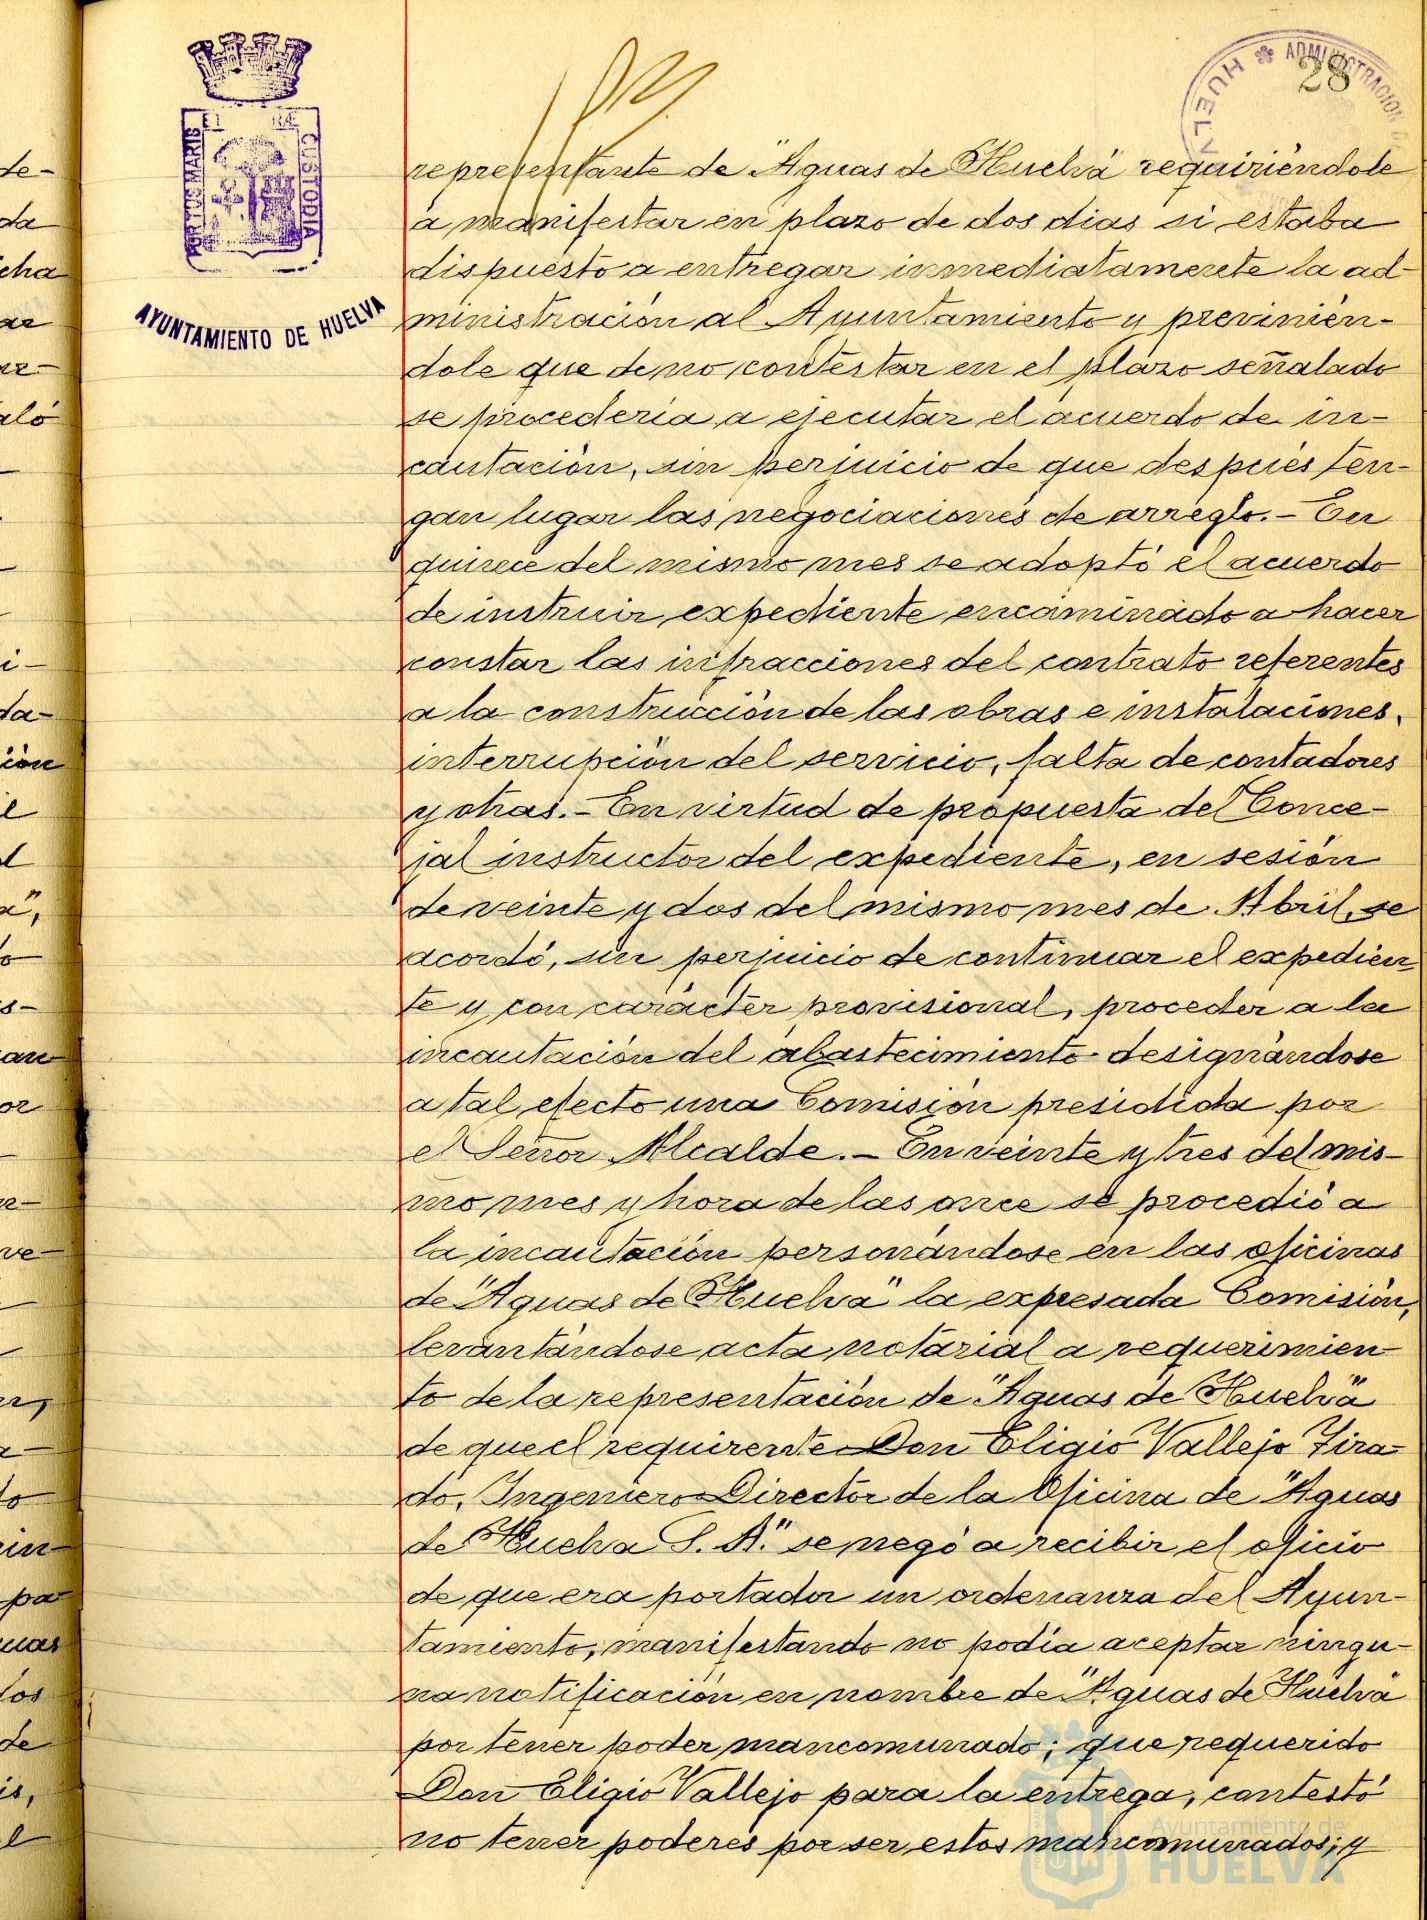 28
ADMINISTRACION
HUELVA
PORTUS MARIS ET TERRAE CUSTODIA
AYUNTAMIENTO DE HUELVA
representante de "Aguas de Huelva" requiriéndole
a manifestar en plazo de dos dias si estaba
dispuesto a entregar inmediatamente la ad-
ministración al Ayuntamiento y previnién-
dole que de no contestar en el plazo señalado
se procedería a ejecutar el acuerdo de in-
cautación, sin perjuicio de que después ten-
gan lugar las negociaciones de arreglo.- En
quince del mismo mes se adoptó el acuerdo
de instruir expediente encaminado a hacer
constar las infracciones del contrato referentes
a la construcción de las obras e instalaciones,
interrupción del servicio, falta de contadores
y otras.- En virtud de propuesta del Conce-
jal instructor del expediente, en sesión
de veinte y dos del mismo mes de Abril, se
acordó, sin perjuicio de continuar el expedien
te y con carácter provisional, proceder a la
incautación del abastecimiento designándose
a tal efecto una Comisión presidida por
el Señor Alcalde.- En veinte y tres del mis-
mo mes y hora de las once se procedió a
la incautación personándose en las oficinas
de "Aguas de Huelva" la expresada Comisión,
levantándose acta notarial a requerimien-
to de la representación de "Aguas de Huelva"
de que el requirente Don Eligio Vallejo Tira-
do, Ingeniero Director de la Oficina de "Aguas
de Huelva S. A." se negó a recibir el oficio
de que era portador un ordenanza del Ayun-
tamiento, manifestando no podía aceptar ningu-
na notificación en nombre de "Aguas de Huelva"
por tener poder mancomunado; que requerido
Don Eligio Vallejo para la entrega, contestó
no tener poderes por ser estos mancomunados; y
Ayuntamiento de
HUELVA